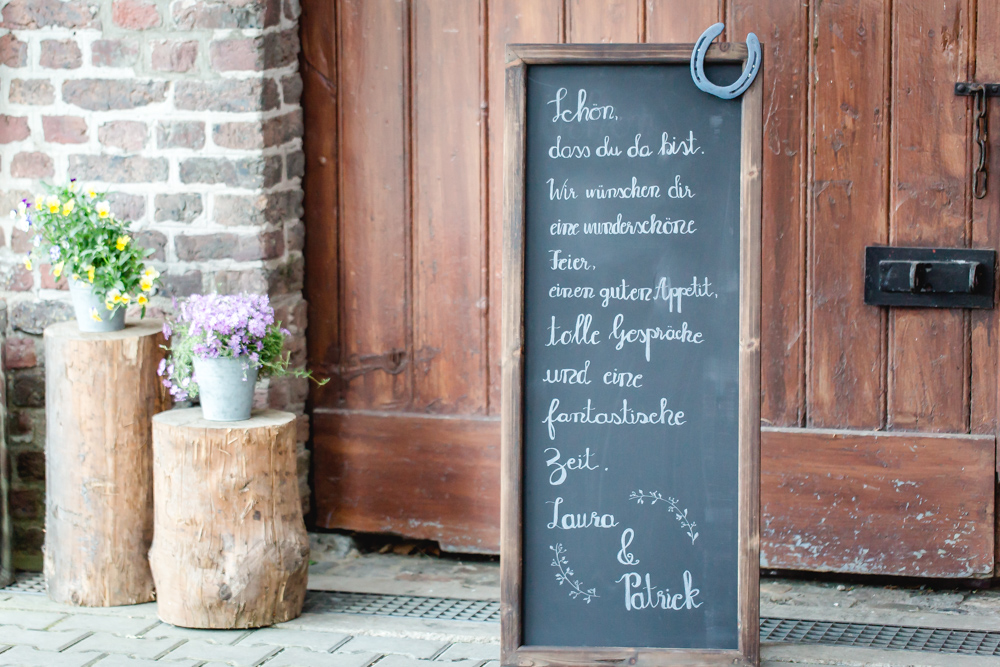 Schön,
dass du da bist.
Wir wünschen dir
eine wunderschöne
Feier,
einen guten Appetit,
tolle Gespräche
und eine
fantastische
Zeit.
Laura
&
Patrick